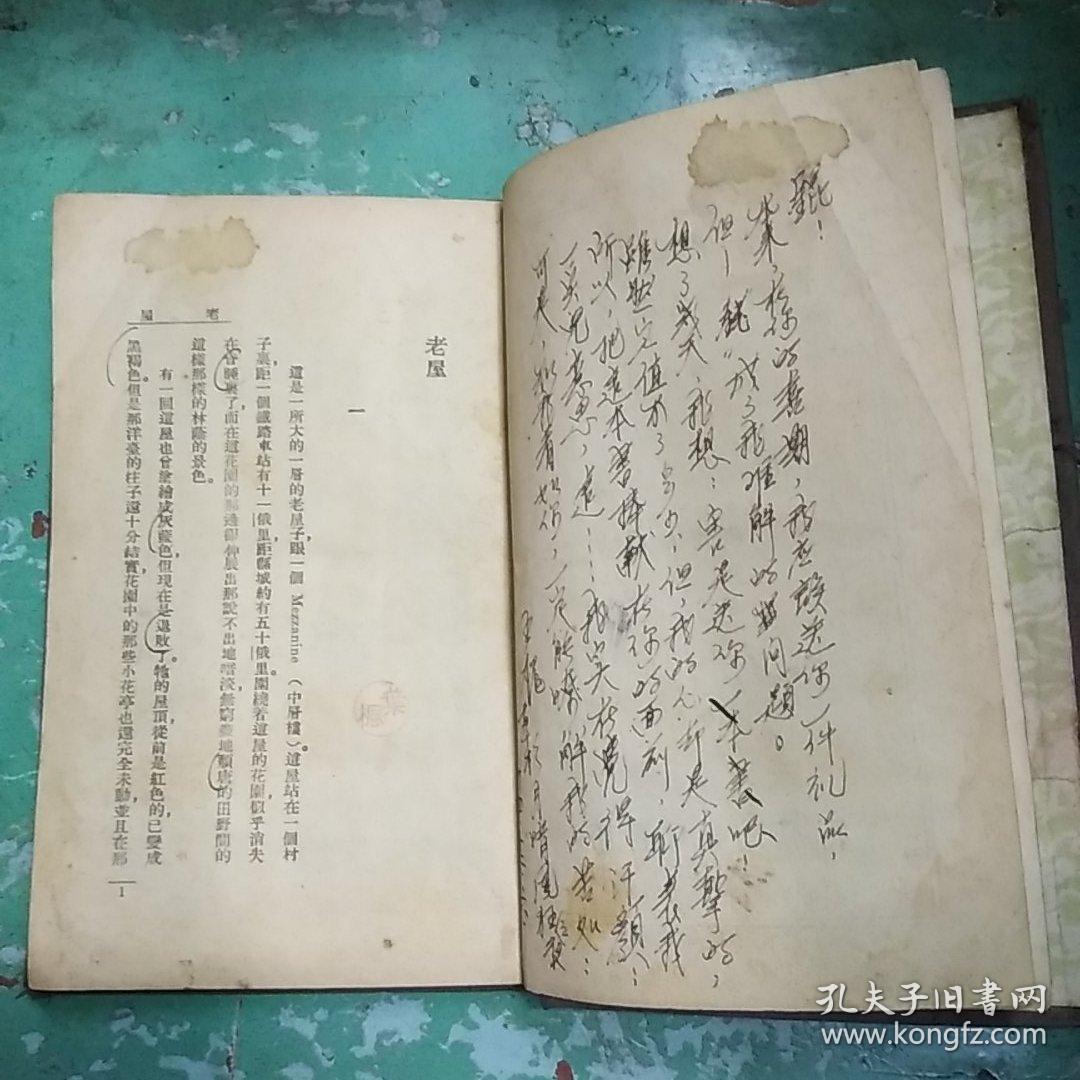 錕！
在你的喜期，我应該送你一件礼品，
但！我成了我难解的問題。
想了幾天，我想：
送你一本書吧！
雖然它值不了多少，但，我的心却是真摯的，
所以，把這本書捧献在你的面前，聊表我
一点儿意思，這……我实在覺得汗顏：
可是，衹有你，一定能够了解我的苦处：
於月暗風狂夜
老屋
老屋
一
這是一所大的一層的老屋子，跟一個 Mezzanine （中層樓）。這屋站在一個村
子裏，距一個鐵路車站有十一俄里，距縣城約有五十俄里。圍繞着這屋的花園似乎消失
在昏睡裏了，而在這花園的那邊，卻伸展出那說不出地暗淡，無窮盡地頹唐的田野間的
這樣那樣的林蔭的景色。
有一回這屋也曾塗繪成灰藍色，但現在是退敗了。牠的屋頂從前是紅色的，已變成
黑褐色。但是那洋臺的柱子還十分結實，花園中的那些小花亭也還完全未動，並且在那
1
孔夫子旧書网
www.kongfz.com